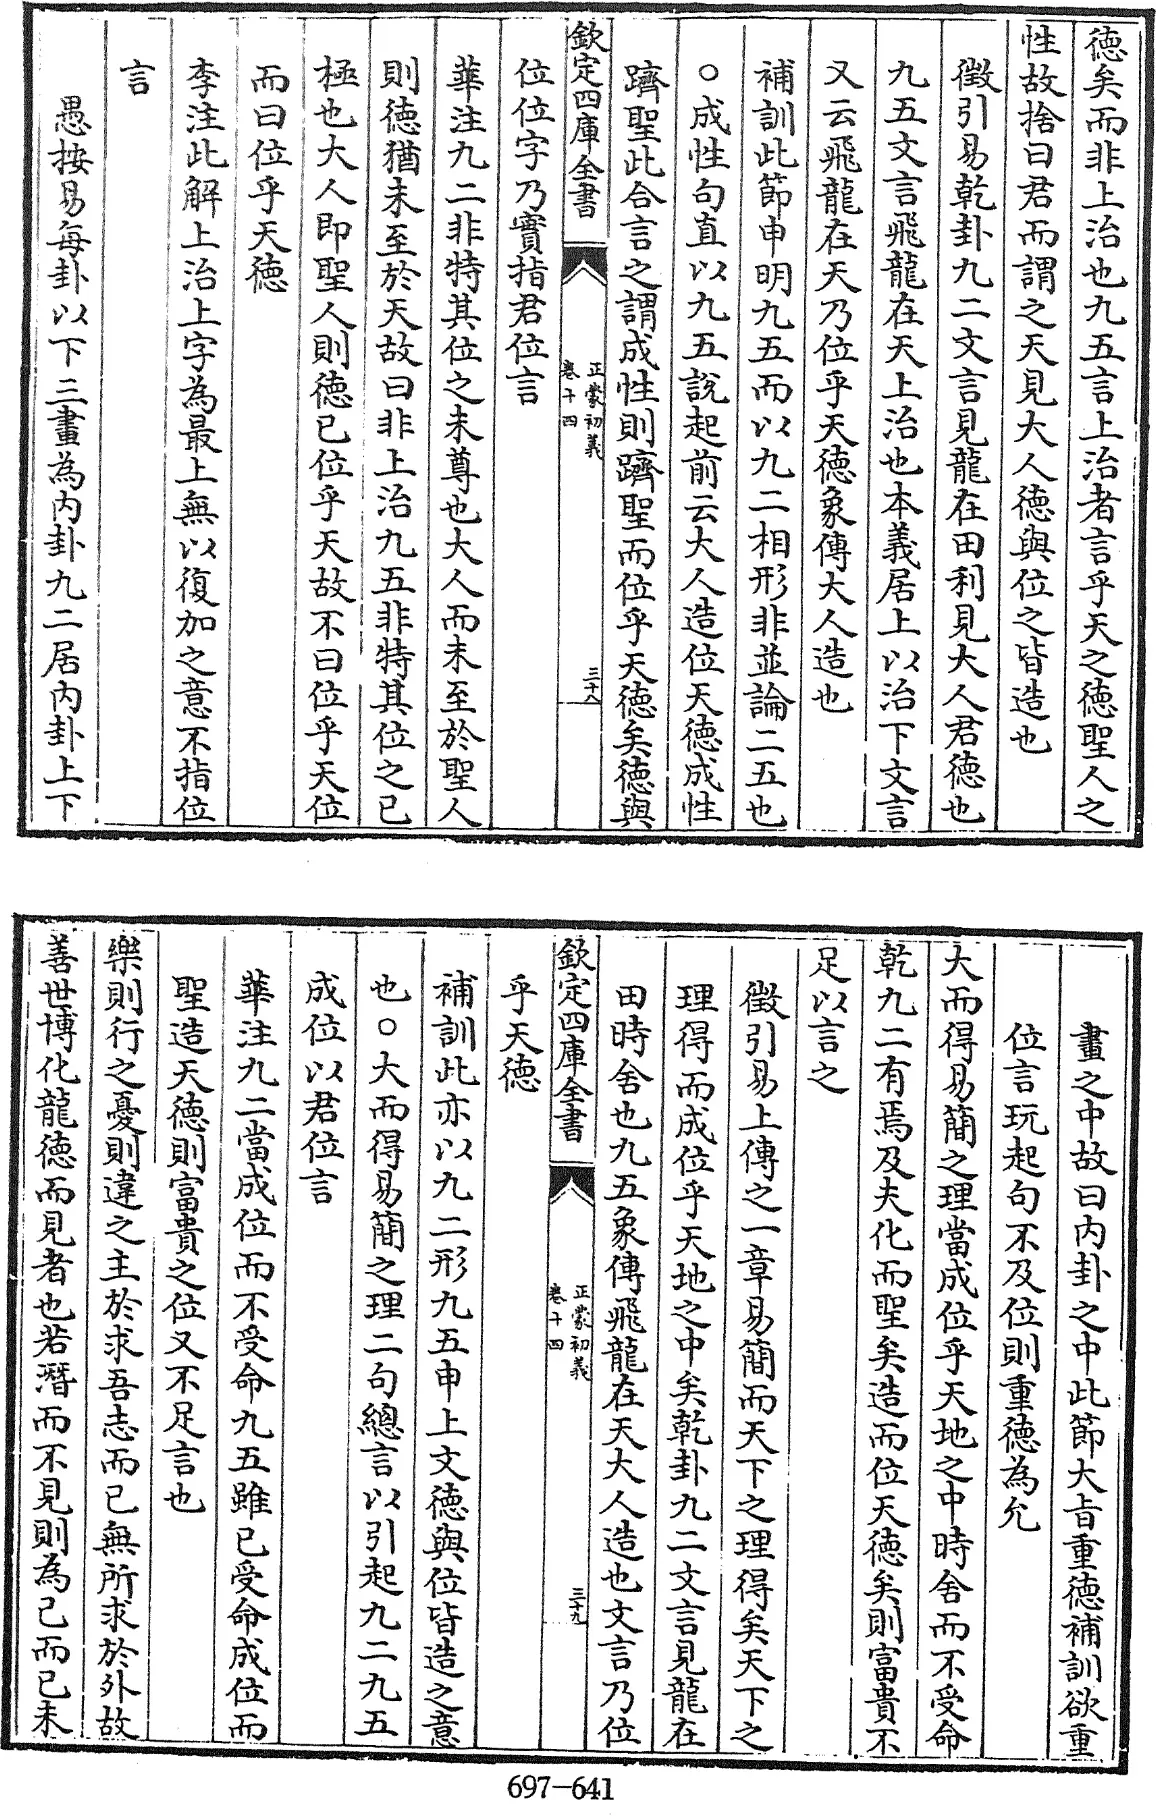 德矣而非上治也九五言上治者言乎天之德聖人之
性故捨曰君而謂之天見大人德與位之皆造也
徵引易乾卦九二文言見龍在田利見大人君德也
九五文言飛龍在天上治也本義居上以治下文言
又云飛龍在天乃位乎天德象傳大人造也
補訓此節申明九五而以九二相形非並論二五也
○成性句直以九五說起前云大人造位天德成性
躋聖此合言之謂成性則躋聖而位乎天德矣德與
欽定四庫全書
正蒙初義
卷十四
三十八
位位字乃實指君位言
華注九二非特其位之未尊也大人而未至於聖人
則德猶未至於天故曰非上治九五非特其位之已
極也大人即聖人則德已位乎天故不曰位乎天位
而曰位乎天德
李注此解上治上字為最上無以復加之意不指位
言
愚按易每卦以下三畫為內卦九二居內卦上下
畫之中故曰內卦之中此節大旨重德補訓欲重
位言玩起句不及位則重德為允
大而得易簡之理當成位乎天地之中時舍而不受命
乾九二有焉及夫化而聖矣造而位天德矣則富貴不
足以言之
徵引易上傳之一章易簡而天下之理得矣天下之
理得而成位乎天地之中矣乾卦九二文言見龍在
田時舍也九五象傳飛龍在天大人造也文言乃位
欽定四庫全書
正蒙初義
卷十四
三十九
乎天德
補訓此亦以九二形九五申上文德與位皆造之意
也○大而得易簡之理二句總言以引起九二九五
成位以君位言
華注九二當成位而不受命九五雖已受命成位而
聖造天德則富貴之位又不足言也
樂則行之憂則違之主於求吾志而已無所求於外故
善世博化龍德而見者也若潛而不見則為己而已未
697-641